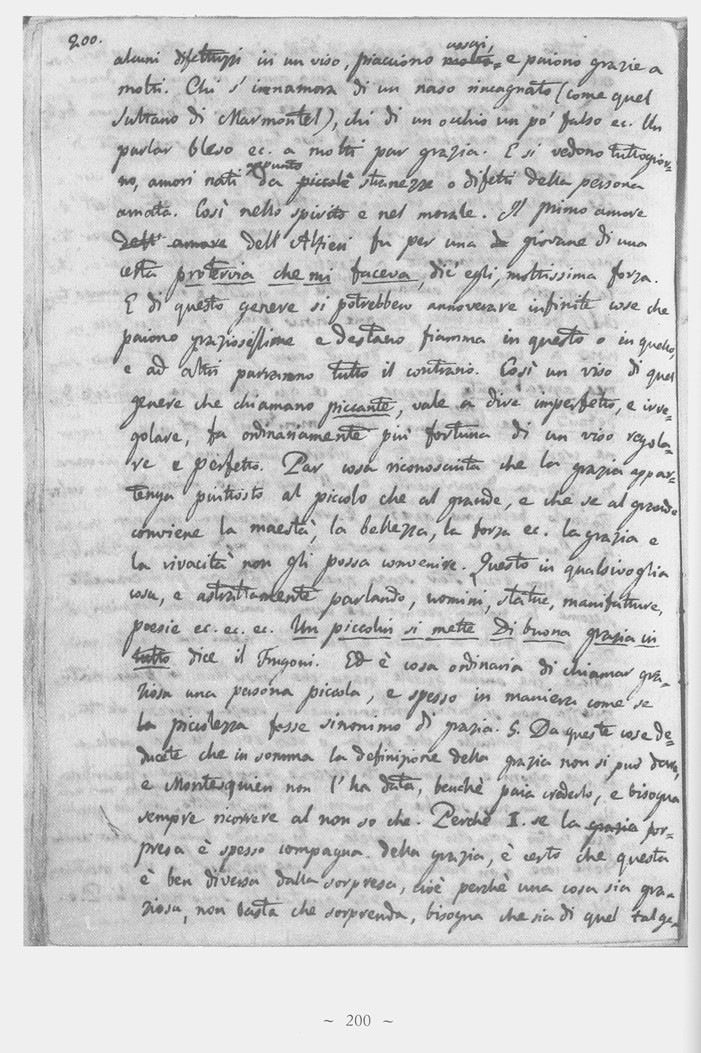 200.
alcuni difettuzzi in un viso, piacciono assai, e paiono grazie a
molti. Chi s' innamora di un naso rincagnato (come quel
Sultano di Marmontel), chi di un occhio un po' falso ec. Un
parlar bleso ec. a molti par grazia. E si vedono tuttogior-
no, amori nati appunto da piccole stranezze o difetti della persona
amata. Così nello spirito e nel morale. Il primo amore
dell' amore dell' Alfieri fu per una giovane di una
certa protervia che mi faceva, dic' egli, moltissima forza.
E di questo genere si potrebbero annoverare infinite cose che
paiono graziosissime e destano fiamma in questo o in quello,
e ad altri parranno tutto il contrario. Così un viso di quel
genere che chiamano piccante, vale a dire imperfetto, e irre-
golare, fa ordinariamente più fortuna di un viso regola-
re e perfetto. Par cosa riconosciuta che la grazia appar-
tenga piuttosto al piccolo che al grande, e che se al grande
conviene la maestà, la bellezza, la forza ec. la grazia e
la vivacità non gli possa convenire. Questo in qualsivoglia
cosa, e astrattamente parlando, uomini, statue, manifatture,
poesie ec. ec. ec. Un piccolin si mette Di buona grazia in
tutto dice il Frugoni. Ed è cosa ordinaria di chiamar gra-
ziosa una persona piccola, e spesso in maniera come se
la piccolezza fosse sinonimo di grazia. 5. Da queste cose de-
ducete che in somma la definizione della grazia non si può dare,
e Montesquieu non l' ha data, benchè paia crederlo, e bisogna
sempre ricorrere al non so che. Perchè 1. se la grazia sor-
presa è spesso compagna della grazia, è certo che questa
è ben diversa dalla sorpresa, cioè perchè una cosa sia gra-
ziosa, non basta che sorprenda, bisogna che sia di quel tal ge-
~ 200 ~